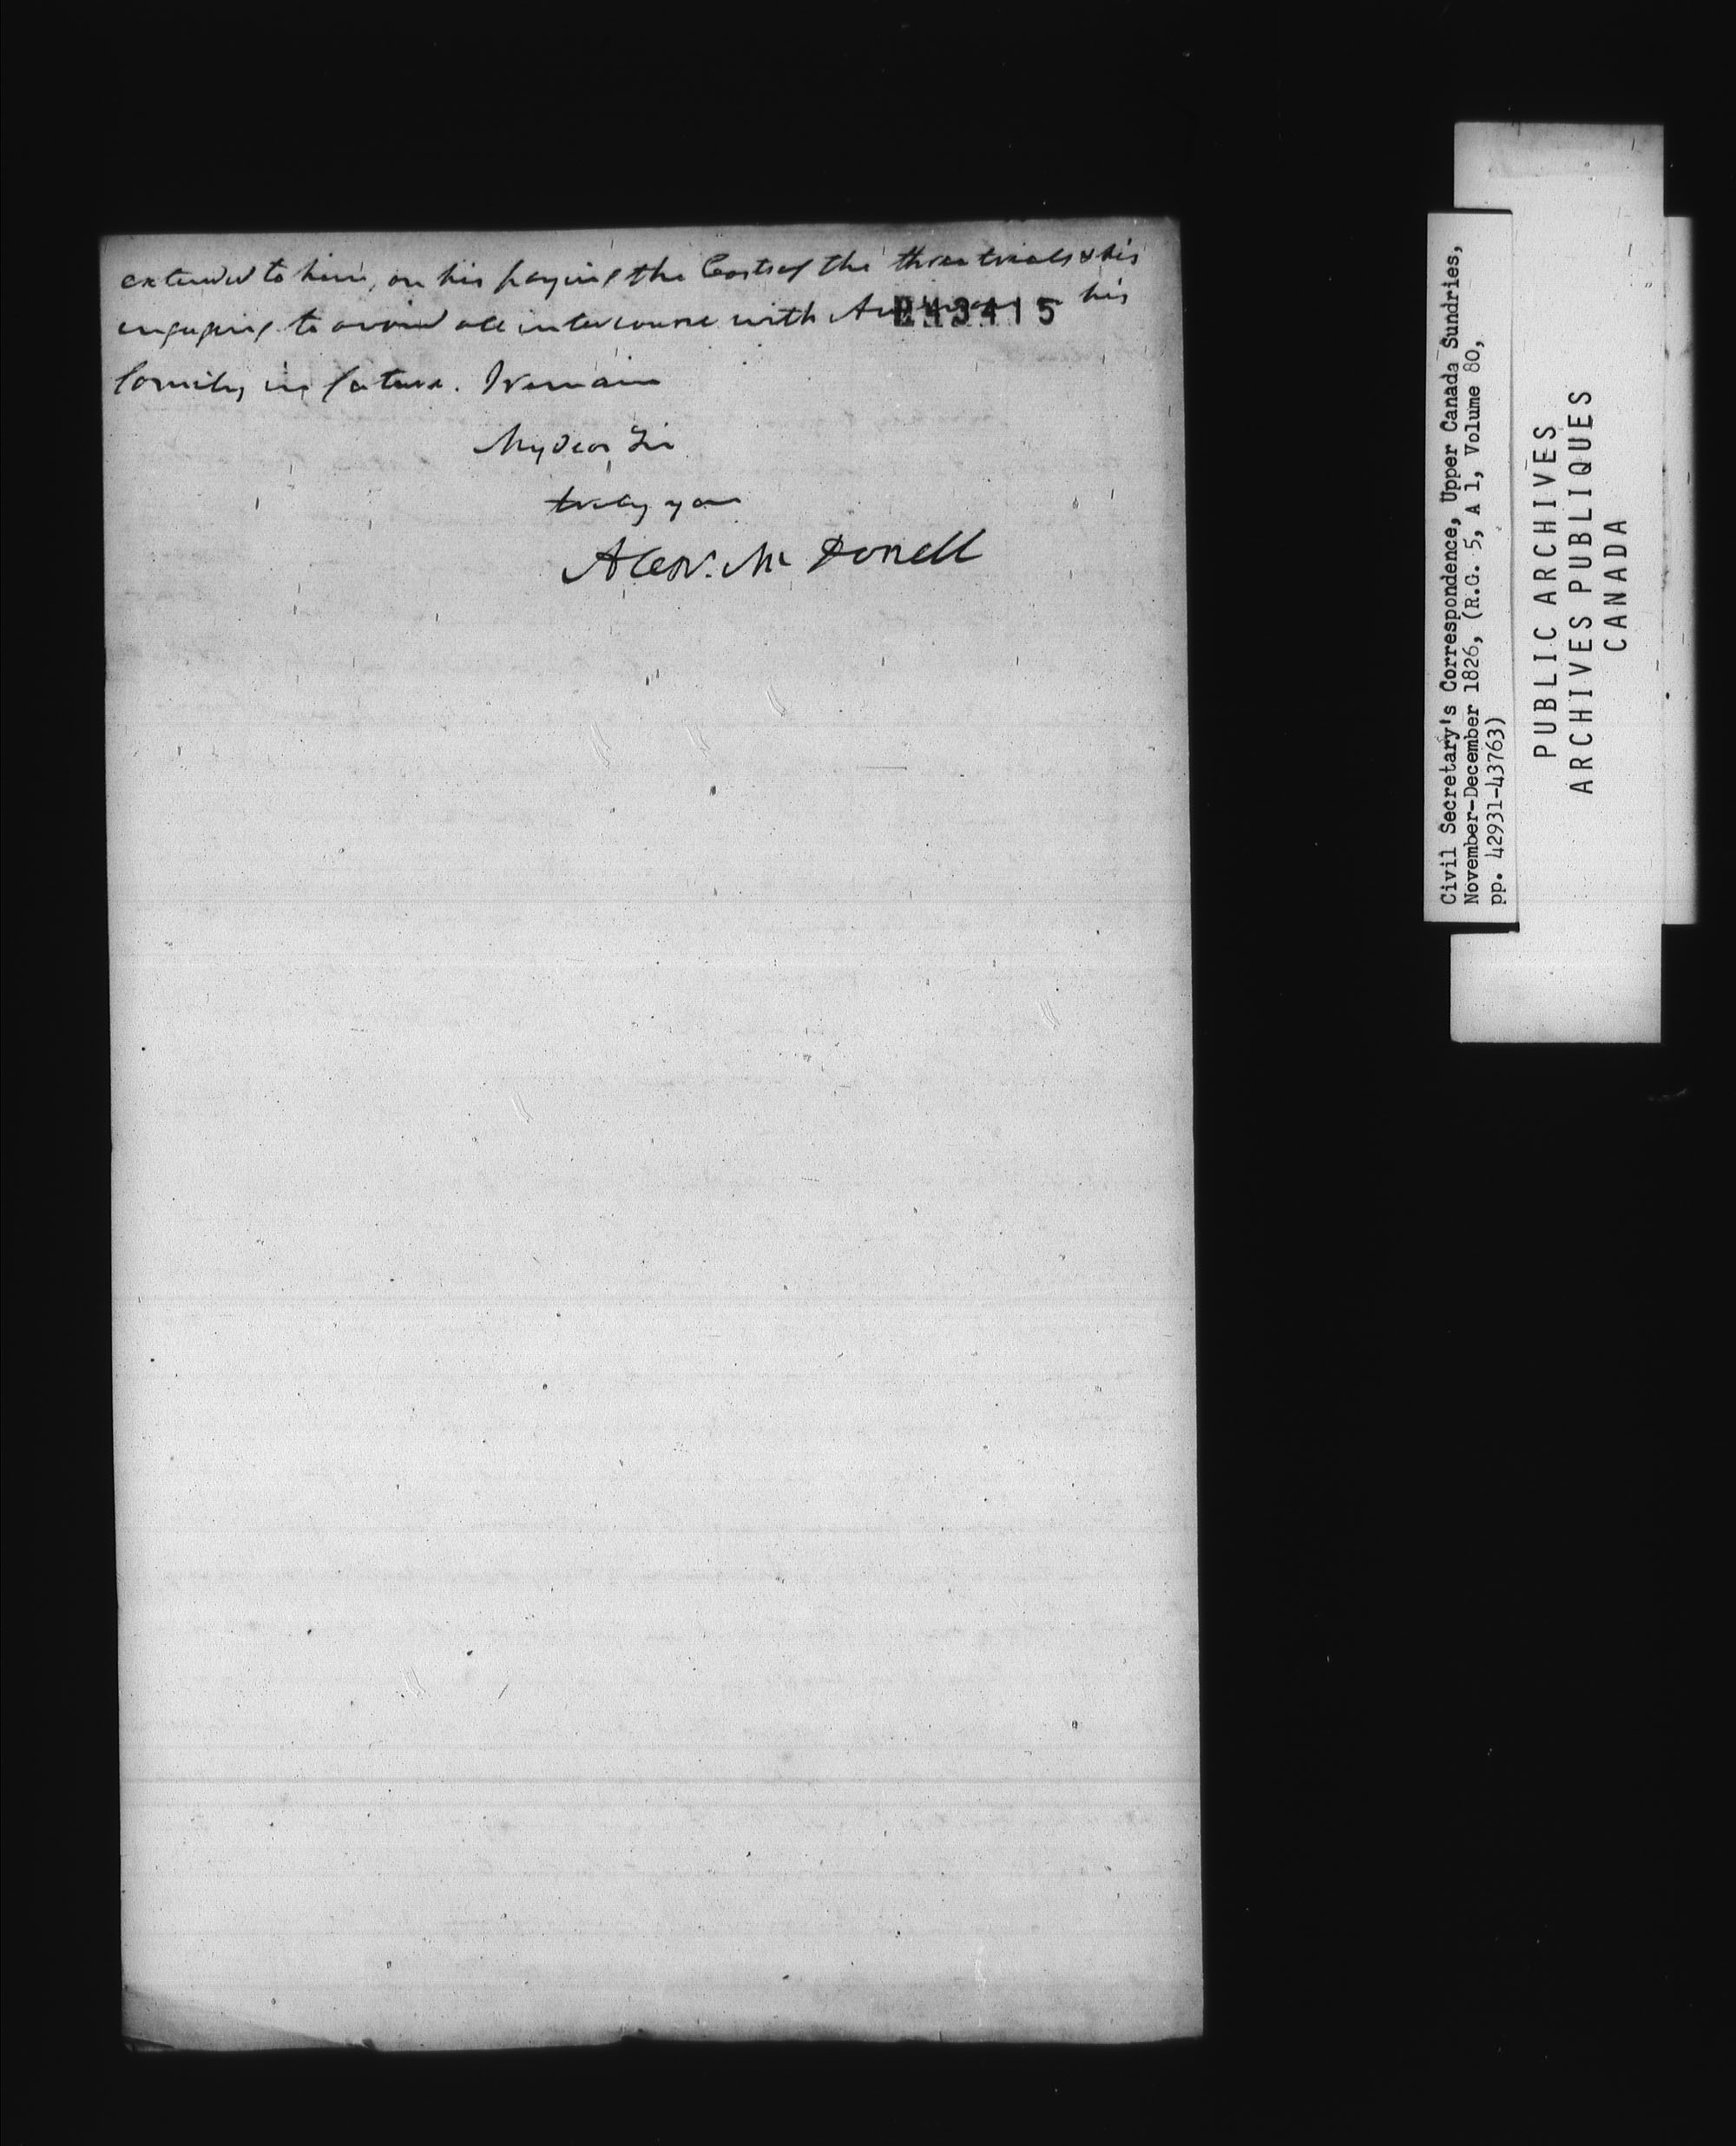 extended to him, on his paying the Costs of the three trials & his
engaging to avoid all intercourse with his
43415
family in future. I remain
My Dear Sir
truly yours
Alexr. Mc Donell
Civil Secretary's Correspondence, Upper Canada Sundries,
November-December 1826, (R.G. 5, A 1, Volume 80,
pp. 42931-43763)
PUBLIC ARCHIVES
ARCHIVES PUBLIQUES
CANADA